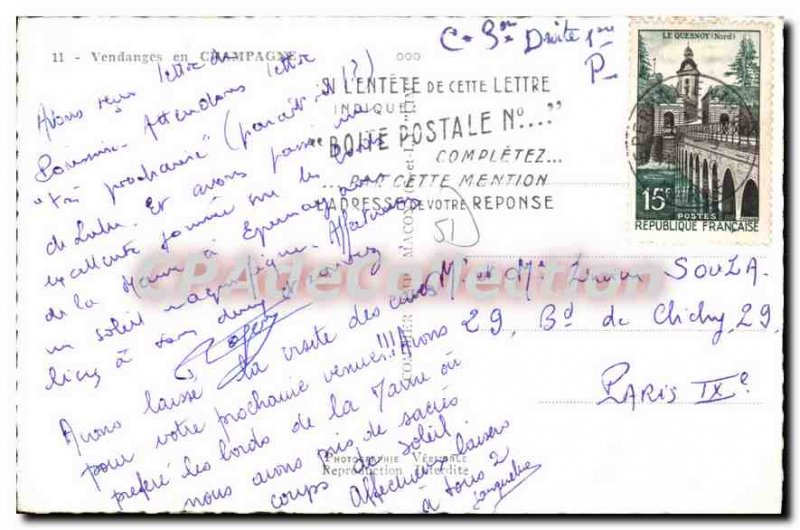 11 - Vendanges en CHAMPAGNE
C. 3me Droite 1re
P
LE QUESNOY (Nord)
15F
POSTES
RÉPUBLIQUE FRANÇAISE
SI L'ENTÊTE DE CETTE LETTRE
INDIQUE
"BOITE POSTALE No...."
COMPLÉTEZ...
...PAR CETTE MENTION
L'ADRESSE DE VOTRE REPONSE
51
Avons reçu lettre de
Poursin. Attendons lettre
"très prochaine" (paraît-il ?)
de Lulu. Et avons passé une
excellente journée sur les bords
de la Marne à Epernay
un soleil magnifique. Affectueuses
à tous deux
Roger
Avons laissé la visite des caves
pour votre prochaine venue!!! Avons
préféré les bords de la Marne où
nous avons pris de sacrés
coups de soleil
Affectueux baisers
à tous 2
Jacqueline
Mr et Mme SOULA.
29, Bd de Clichy, 29
PARIS IXe
CPAdeCollection
PHOTOGRAPHIE VÉRITABLE
Reproduction Interdite